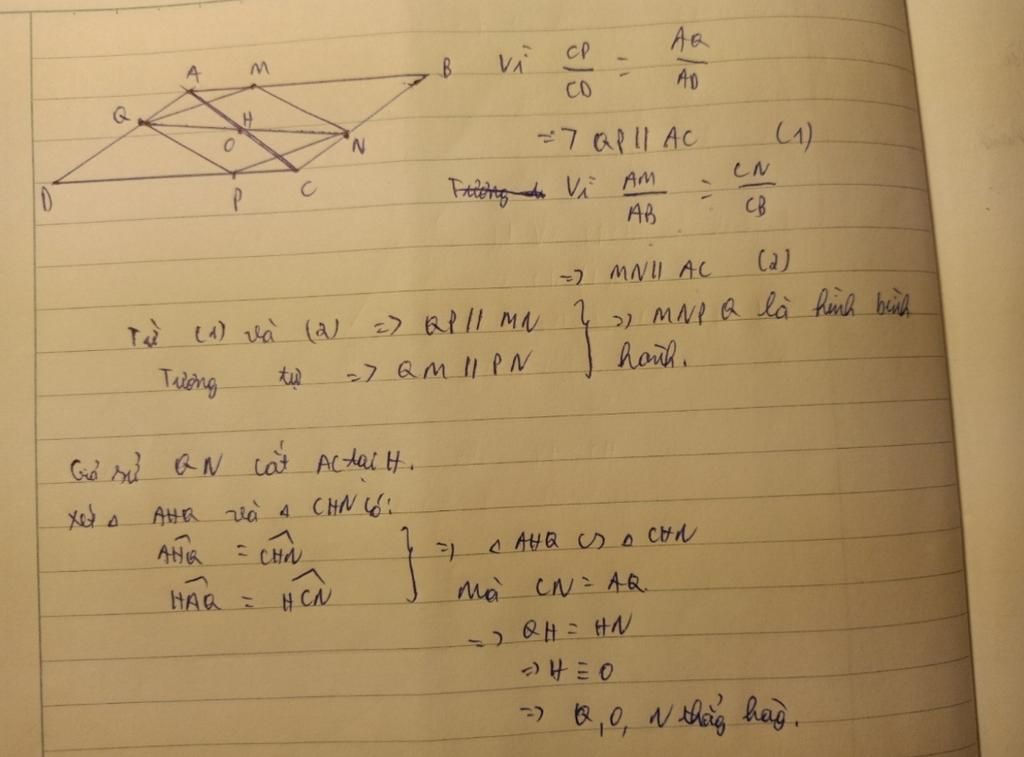 A M B
Q H
O N
D P C
Vì CP/CD = AQ/AD
=> QP // AC (1)
Vì AM/AB = CN/CB
=> MN // AC (2)
Từ (1) và (2) => QP // MN } => MNPQ là hình bình
Tương tự => QM // PN hành.
Giả sử QN cắt AC tại H.
Xét Δ AHQ và Δ CHN có:
AHQ = CHN } => Δ AHQ ∽ Δ CHN
HAQ = HCN Mà CN = AQ
=> QH = HN
=> H ≡ O
=> Q, O, N thẳng hàg.